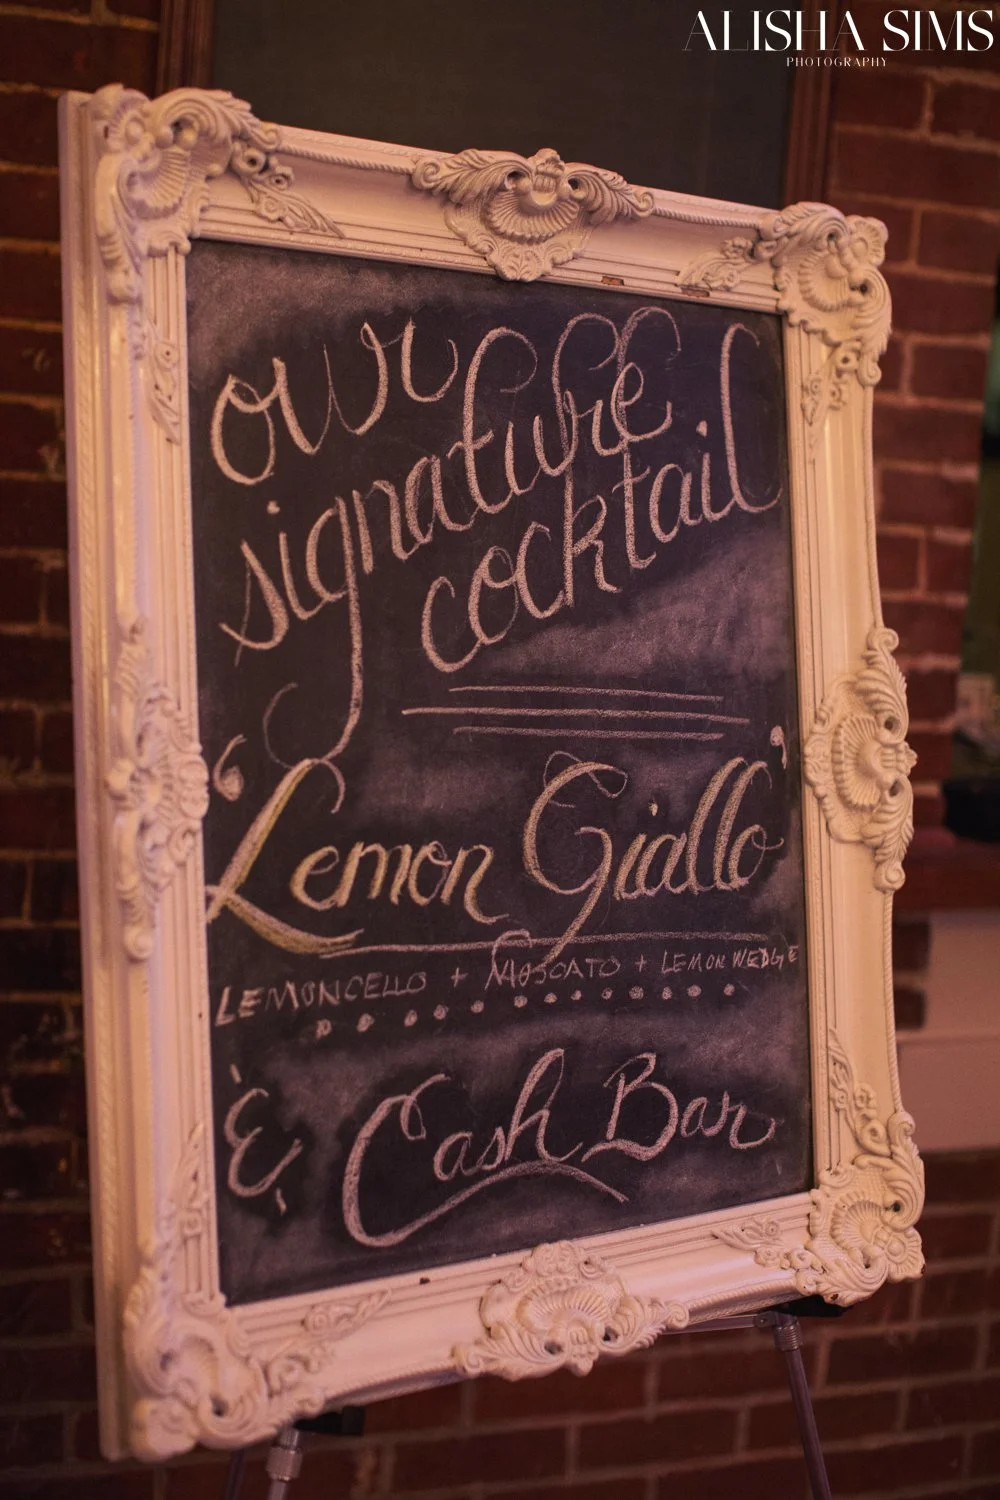 ALISHA SIMS
PHOTOGRAPHY
our
signature
cocktail
"Lemon Giallo"
LEMONCELLO + MOSCATO + LEMON WEDGE
& Cash Bar